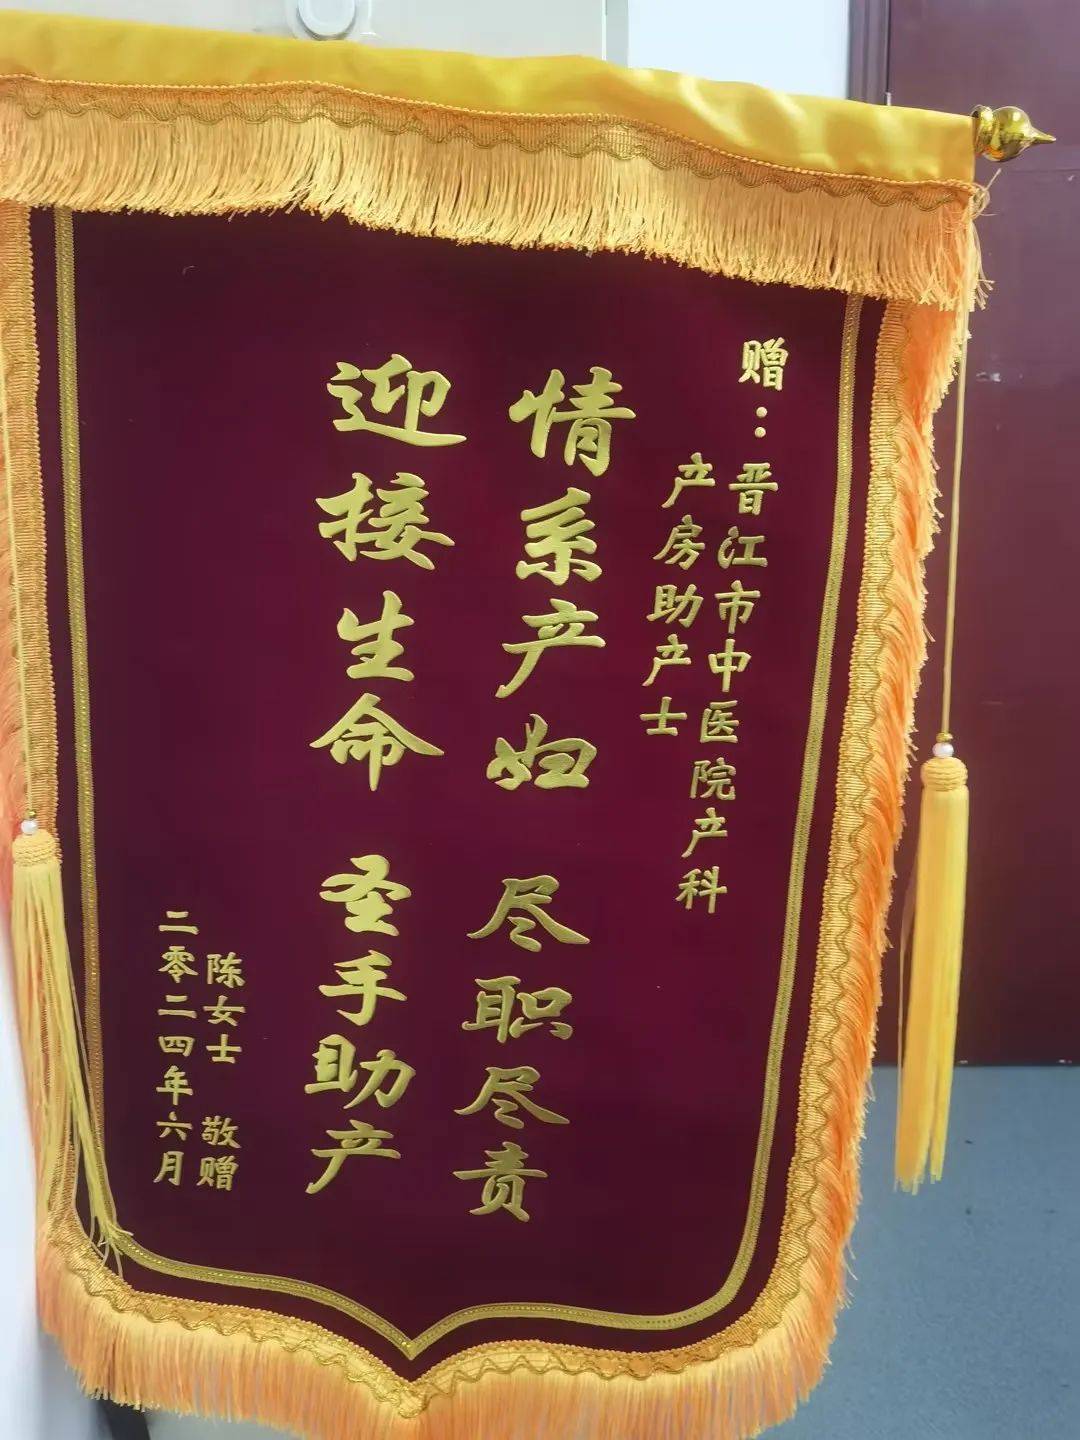 赠：晋江市中医院产科
产房助产士
情系产妇 尽职尽责
迎接生命 圣手助产
陈女士 敬赠
二零二四年六月